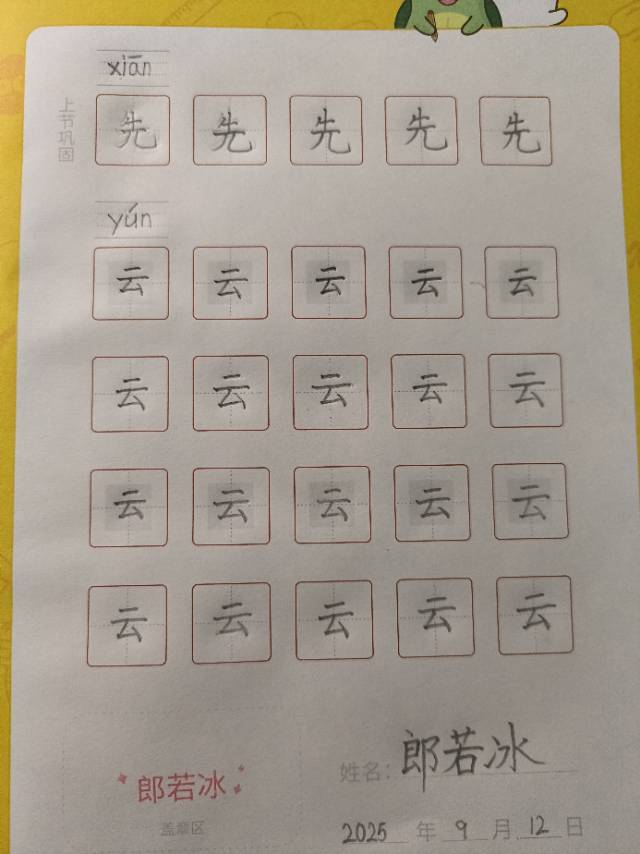 xiān
上节巩固
先 先 先 先 先
yún
云 云 云 云 云
云 云 云 云 云
云 云 云 云 云
云 云 云 云 云
郎若冰
盖章区
姓名：郎若冰
2025 年 9 月 12 日